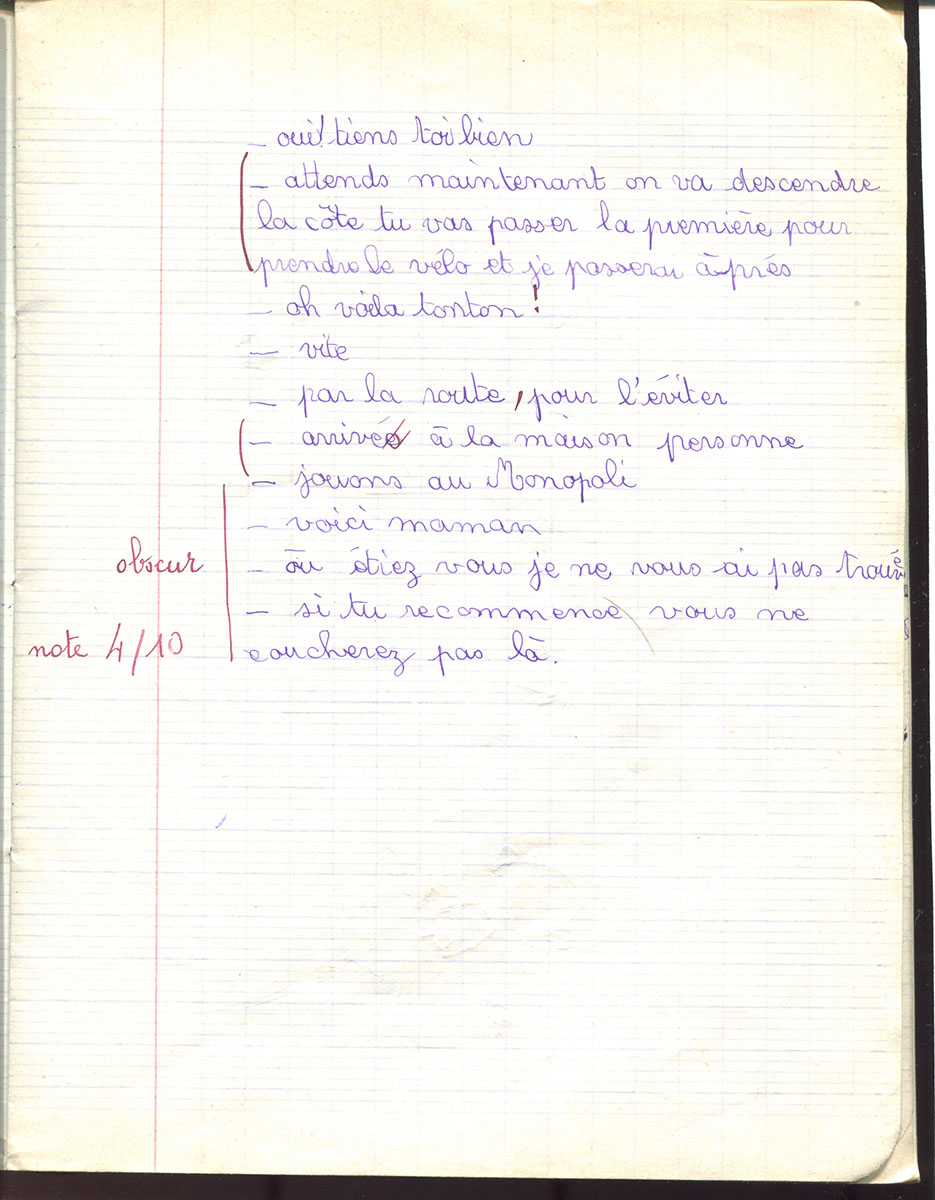 – oui! tiens toi bien
– attends maintenant on va descendre
la côte tu vas passer la première pour
prendre le vélo et je passerai àprés
– oh voila tonton !
– vite
– par la route, pour l'éviter
– arrivés à la maison personne
– jouons au Monopoli
– voici maman
obscur – òu étiez vous je ne vous ai pas trouvé
– si tu recommence vous ne
note 4/10 coucherez pas là.